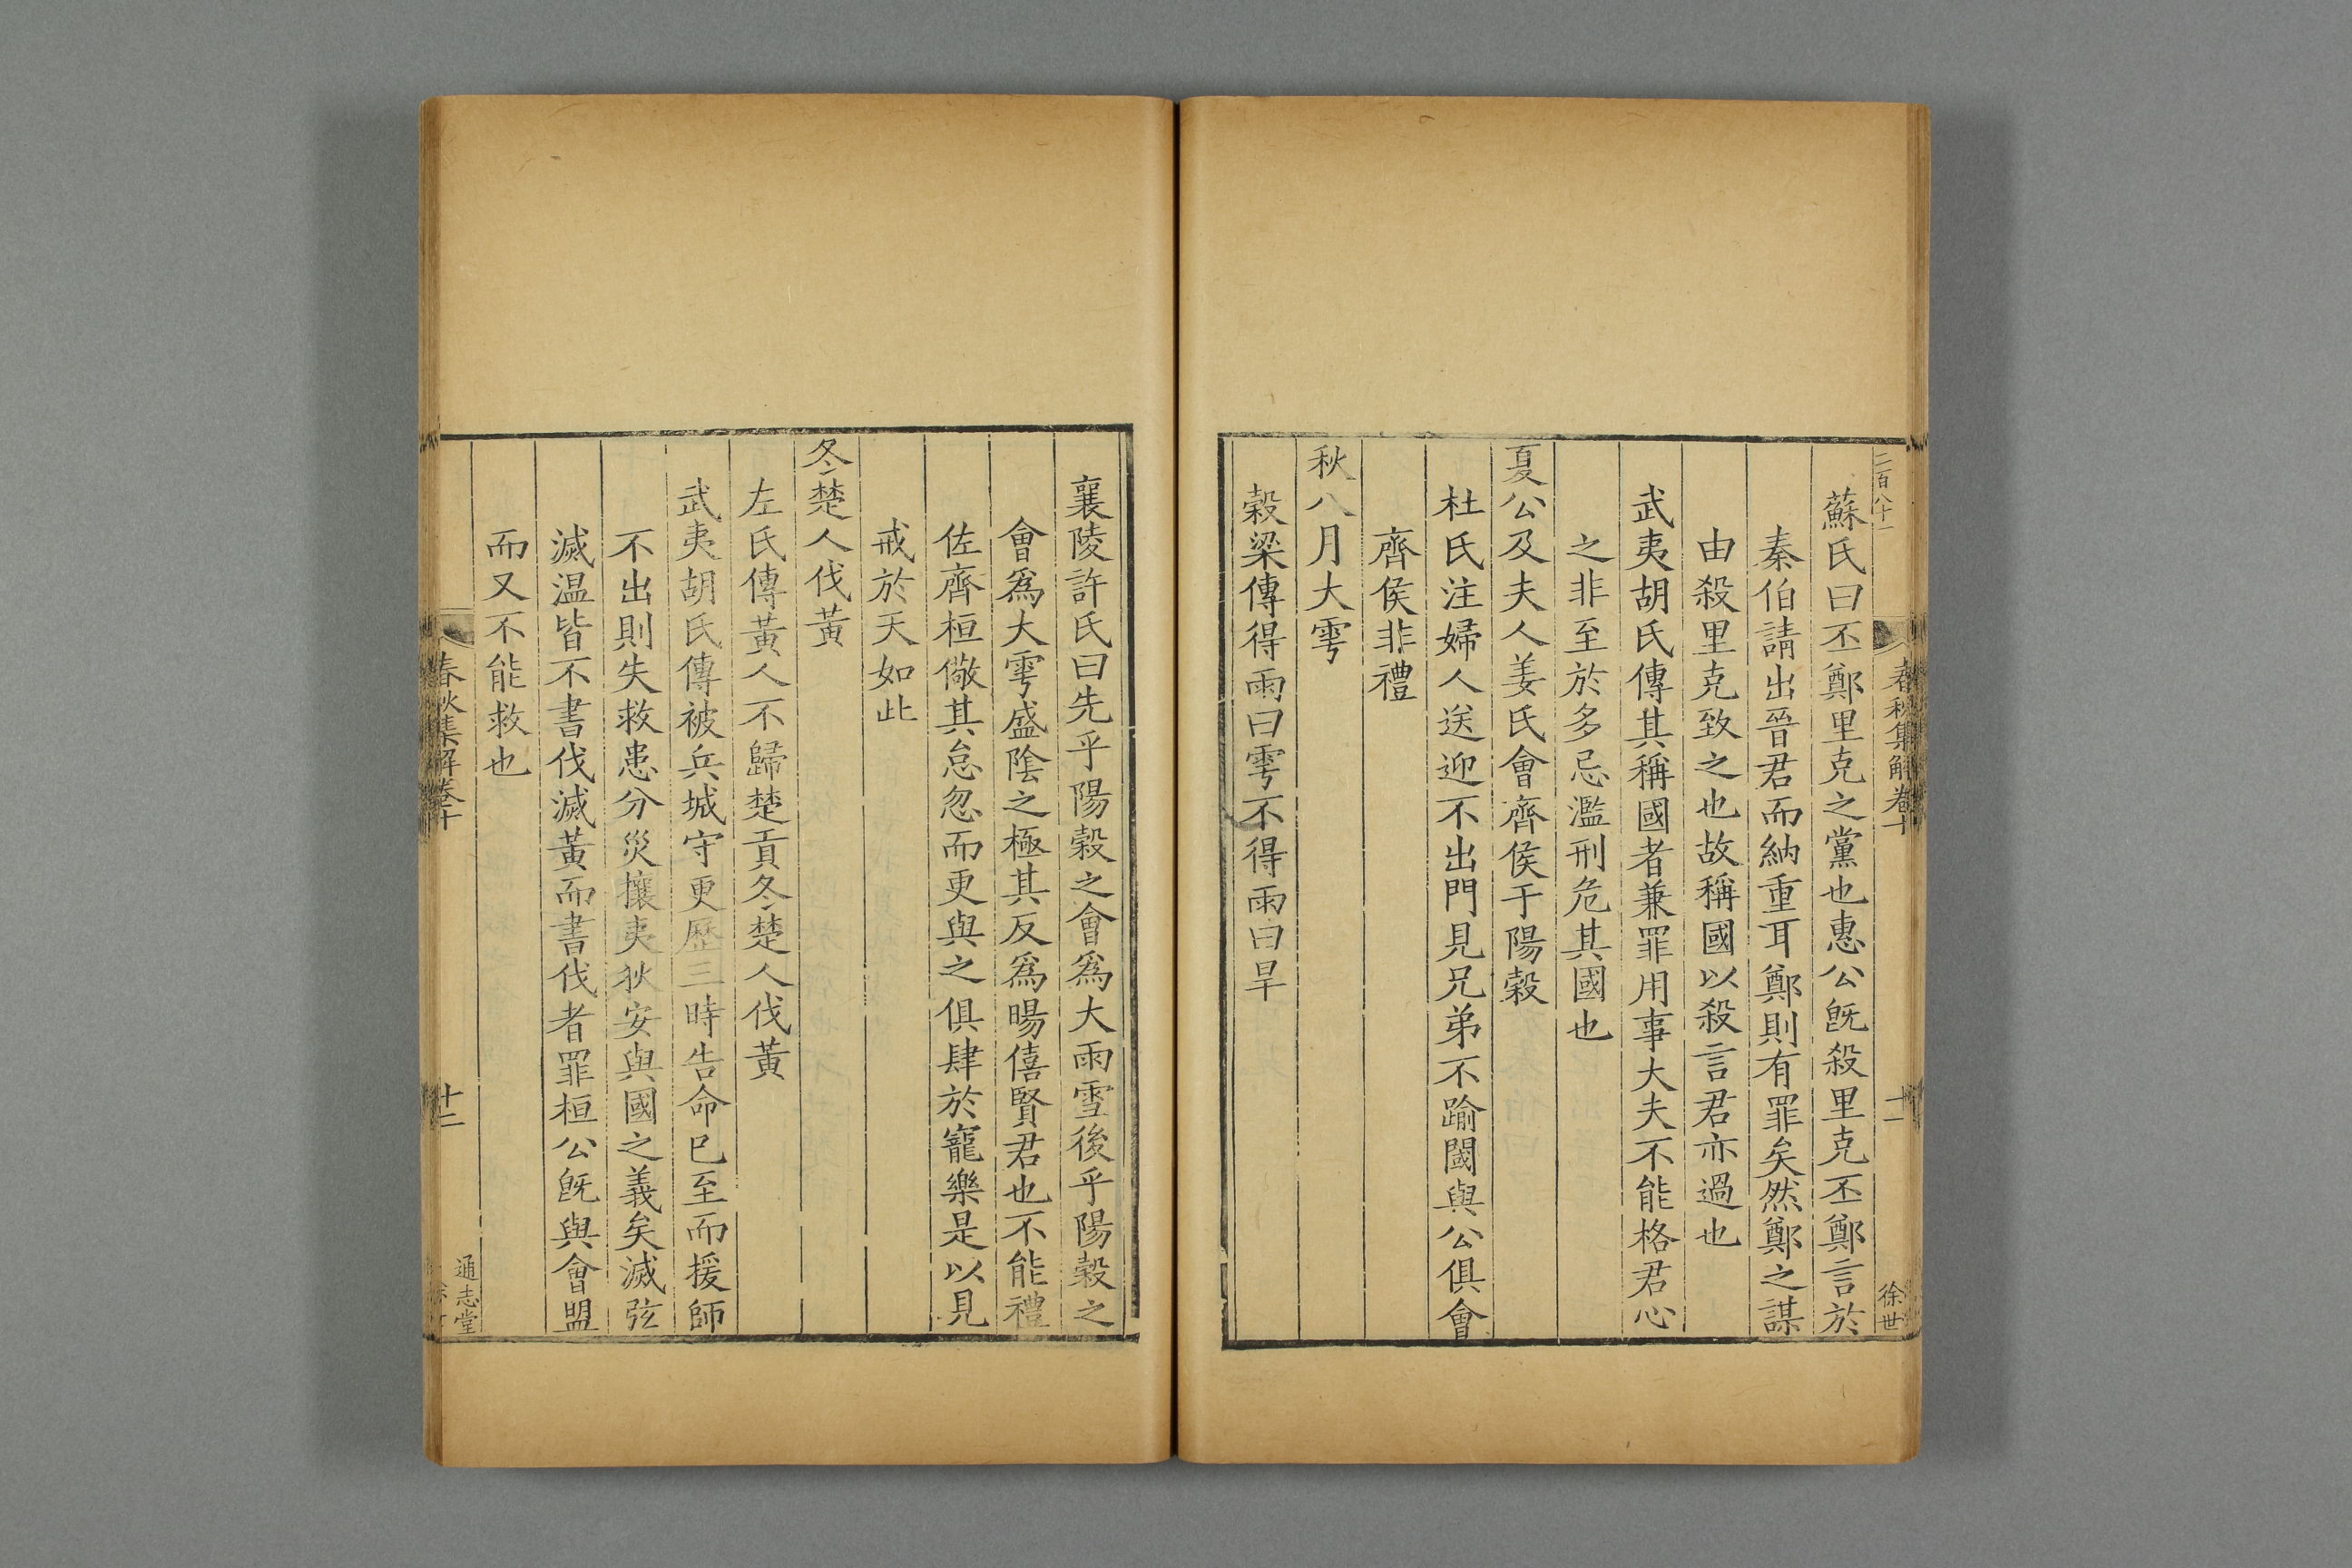 二百八十一
春秋集解卷十
十一
徐世
蘇氏曰丕鄭里克之黨也惠公旣殺里克丕鄭言於
秦伯請出晉君而納重耳鄭則有罪矣然鄭之謀
由殺里克致之也故稱國以殺言君亦過也
武夷胡氏傳其稱國者兼罪用事大夫不能格君心
之非至於多忌濫刑危其國也
夏公及夫人姜氏會齊侯于陽穀
杜氏注婦人送迎不出門見兄弟不踰閾與公俱會
齊侯非禮
秋八月大雩
穀梁傳得雨曰雩不得雨曰旱
襄陵許氏曰先乎陽穀之會爲大雨雪後乎陽穀之
會爲大雩盛陰之極其反爲暘僖賢君也不能禮
佐齊桓儆其怠忽而更與之俱肆於寵樂是以見
戒於天如此
冬楚人伐黃
左氏傳黃人不歸楚貢冬楚人伐黃
武夷胡氏傳被兵城守更歷三時告命已至而援師
不出則失救患分災攘夷狄安與國之義矣滅弦
滅温皆不書伐滅黃而書伐者罪桓公旣與會盟
而又不能救也
春秋集解卷十
十二
通志堂